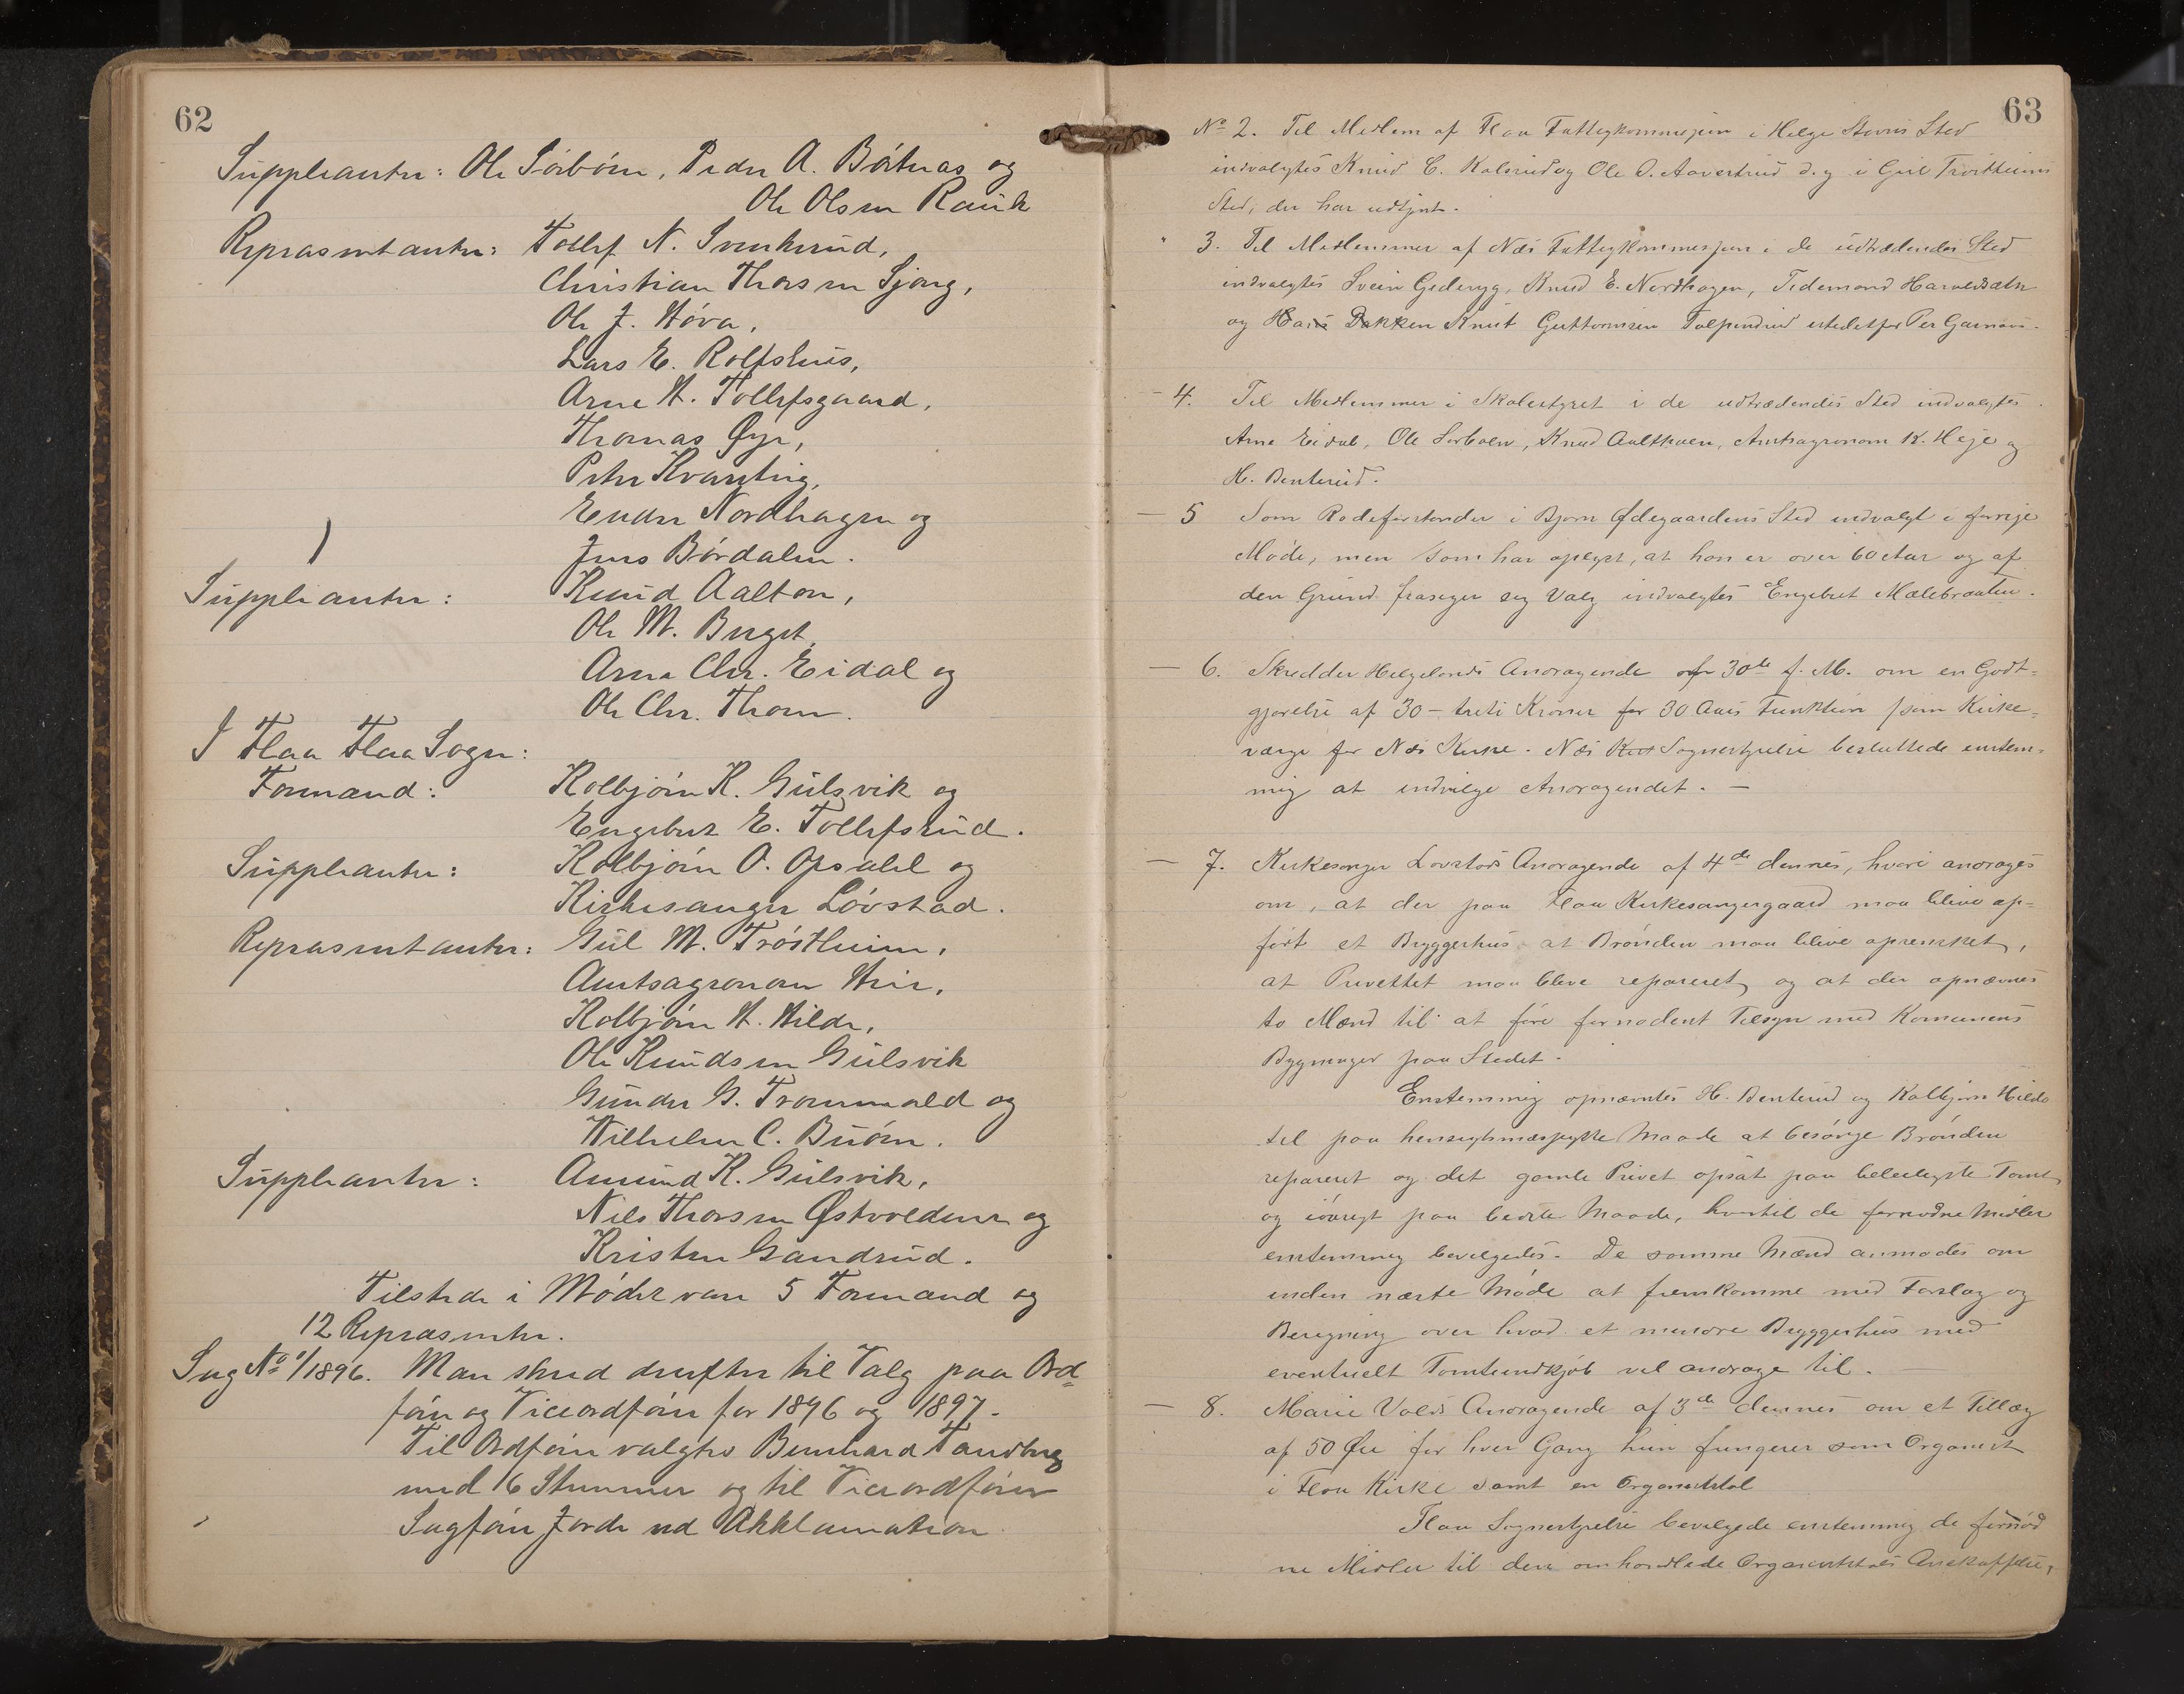 62
Suppleanter: Ole Sörbøen, Peder A. Bötnas og
Ole Olsen Rauk
Repræsentanter: Tollef N. Svenkerud,
Christian Thorsen Sjong,
Ole J. Høva,
Lars E. Rolfshus,
Arne H. Tollefsgaard,
Thomas Øye,
Peter Kvarsteig,
Endre Nordhagen og
Jens Børdalen.
Suppleanter: Knud Aalton,
Ole M. Berget,
Arne Chr. Eidal og
Ole Chr. Thoen.
I Flaa Flaa Sogn:
Formænd: Kolbjørn K. Gulsvik og
Engebret E. Tollefsrud.
Suppleanter: Kolbjørn O. Opsahl og
Kirkesanger Løvstad.
Repræsentanter: Gul M. Trøstheim,
Amtsagronom Heie,
Kolbjørn H. Hilde,
Ole Knudsen Gulsvik
Gunder G. Trommald og
Wilhelm C. Buøen.
Suppleanter: Amund K. Gulsvik,
Nils Thorsen Østvolden og
Kristen Gandrud.
Tilstede i Mødet var 5 Formænd og
12 Repræsentr.
Sag No 1/1896. Man skred derefter til Valg paa Ord=
fører og Viceordfører for 1896 og 1897.
Til Ordfører valgtes Bernhard Tandberg
med 16 Stemmer og til Viceordfører
Sagfører Jorde ved Akklamation
63
No 2. Til Medlem af Flaa Fattigkommisjon i Helge Stavns Sted
indvalgtes Knud C. Kolsrud og Ole O. Aavestrud d.y i Gul Trøstheims
Sted, der har udtjent.
3. Til Medlemmer af Næs Fattigkommisjon i de udtrædendes Sted
indvalgtes Svein Gederyg, Knud E. Nordhagen, Tidemand Haraldsæter
og Hans Bakken Knut Guttormsen Tolpinrud istedetfor Per Garnaas.
- 4. Til Medlemmer i Skolestyret i de udtrædendes Sted indvalgtes
Arne Eidal, Ole Sørbøen, Knud Aalthoen, Amtsagronom K. Heje og
H. Benterud.
- 5 Som Rodeforstander i Bjørn Ødegaardens Sted indvalgt i forrige
Møde, men som har oplyst, at han er over 60 Aar og af
den Grund frasiger sig Valg indvalgtes Engebret Mælebraaten.
- 6. Skredder Helgelands Andragende af 30te f. M. om en Godt=
gjørelse af 30 - treti Kroner for 30 Aars Funktion som Kirke=
værge for Næs Kirke. Næs Sognestyrelse besluttede enstem=
mig at indvilge Andragendet. -
- 7. Kirkesanger Lovstads Andragende af 4de dennes, hvori andrages
om, at der paa Flaa Kirkesangergaard maa blive op=
ført et Bryggerhus at Brønden maa blive oprensket,
at Privettet maa blive repareret og at der opnævnes
to Mænd til at føre fornødent Tilsyn med Komunens
Bygninger paa Stedet.
Enstemmig opnævntes H. Benterud og Kolbjørn Hilde
til paa hensigtsmæssigste Maade at besørge Brønden
repareret og det gamle Privet opsat paa beleiligste Tomt
og iøvrigt paa bedste Maade, hvortil de fornødne Midler
enstemmig bevilgedes. De samme Mænd anmodes om
inden næste Møde at fremkomme med Forslag og
Beregning over hvad et mindre Bryggerhus med
eventuelt Tomteindkjøb vil andrage til.
- 8. Marie Volds Andragende af 3de dennes om et Tillæg
af 50 Øre for hver Gang hun fungerer som Organist
i Flaa Kirke samt en Organiststol
Flaa Sognestyrelse bevilgede enstemmig de fornød
ne Midler til den omhandlede Organiststols Anskaffelse,